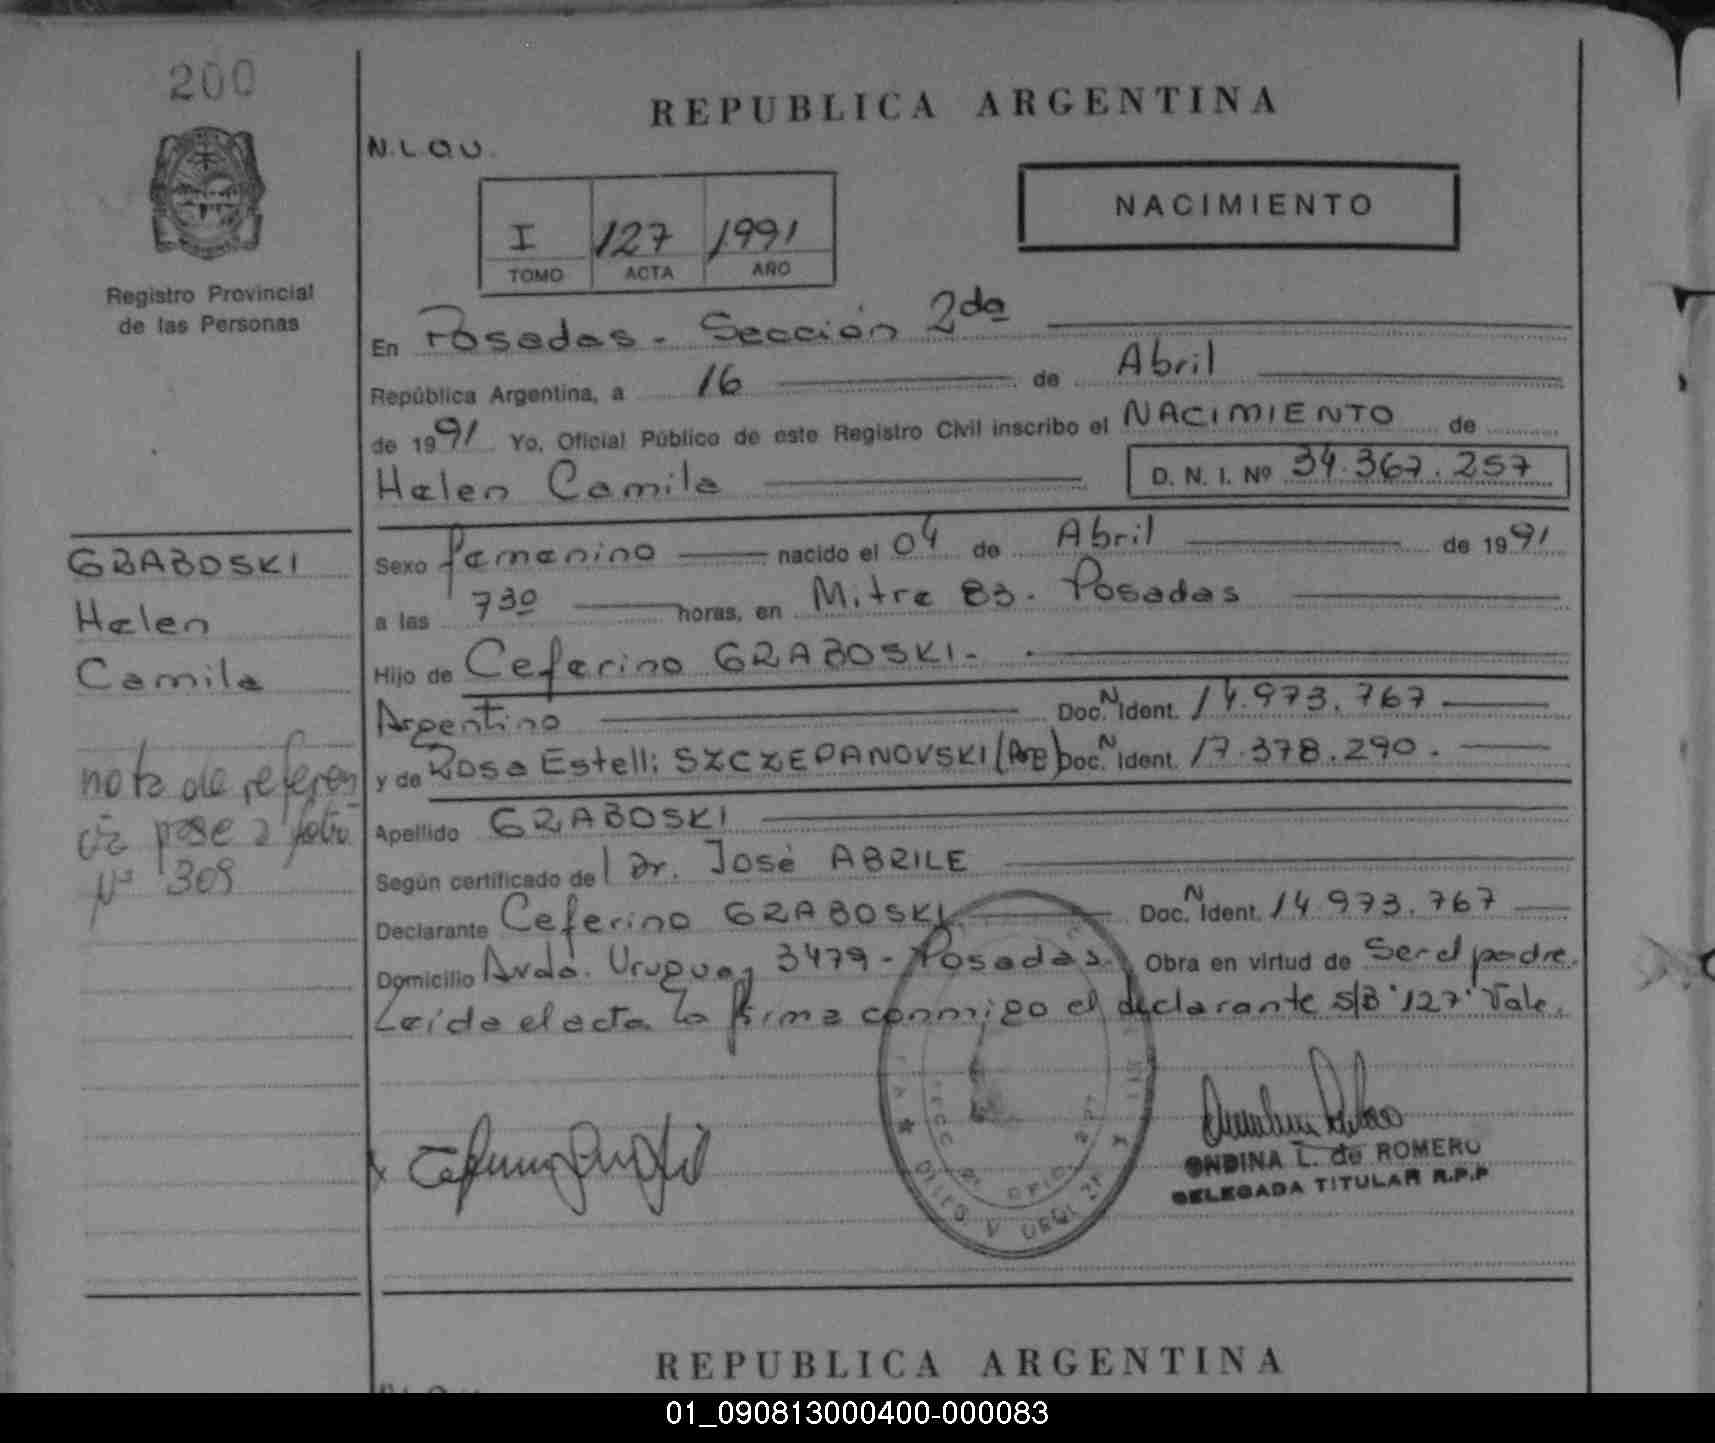 200
REPUBLICA ARGENTINA
N.L.QU.
NACIMIENTO
I 127 1991
TOMO ACTA AÑO
Registro Provincial
de las Personas
En Posadas - Sección 2da
República Argentina, a 16 de Abril
de 1991 Yo, Oficial Público de este Registro Civil inscribo el NACIMIENTO de
Helen Camila D. N. I. Nº 34.367.257
GRABOSKI
Helen
Camila
nota de referen
cia pase a folio
Nº 309
Sexo femenino nacido el 04 de Abril de 1991
a las 730 horas, en Mitre 83. Posadas
Hijo de Ceferino GRABOSKI-
Argentino Doc.N Ident. 14.973.767
y de Rosa Estelli SZCZEPANOVSKI (Arg) Doc.N Ident. 17.378.290.
Apellido GRABOSKI
Según certificado del Dr. José ABRILE
Declarante Ceferino GRABOSKI Doc.N Ident. 14.973.767
Domicilio Avda. Uruguay 3479 - Posadas. Obra en virtud de Ser el padre.
Leída el acta la firma conmigo el declarante S/B "127" Vale.
ONDINA L. de ROMERO
DELEGADA TITULAR R.P.P
REPUBLICA ARGENTINA
01_090813000400-000083